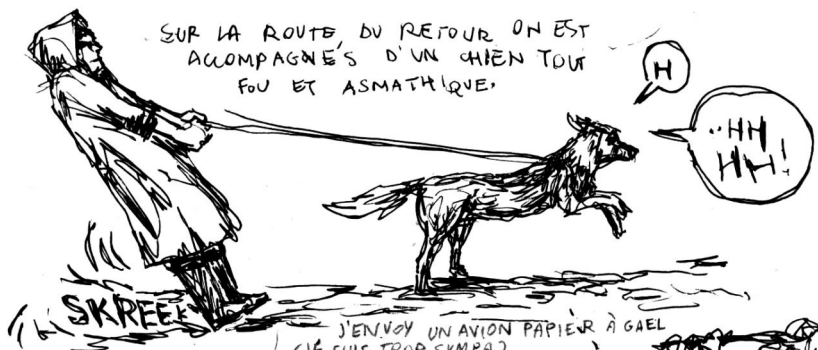 SUR LA ROUTE DU RETOUR ON EST
ACCOMPAGNÉS D'UN CHIEN TOUT
FOU ET ASMATHIQUE.
H
..HH
HH!
SKREEK
J'ENVOY UN AVION PAPIER À GAEL
(JE SUIS TROP SYMPA)